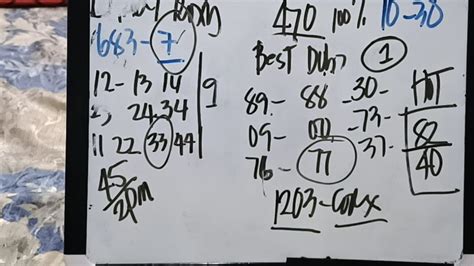 470 100% 10-38
683-7
Best 1
12- 13 14
9
24 34
11 22 33 44
45/2pm
89- 88 -30- HOT
09- 00 -73- 82
76- 77 37- 40
1203-